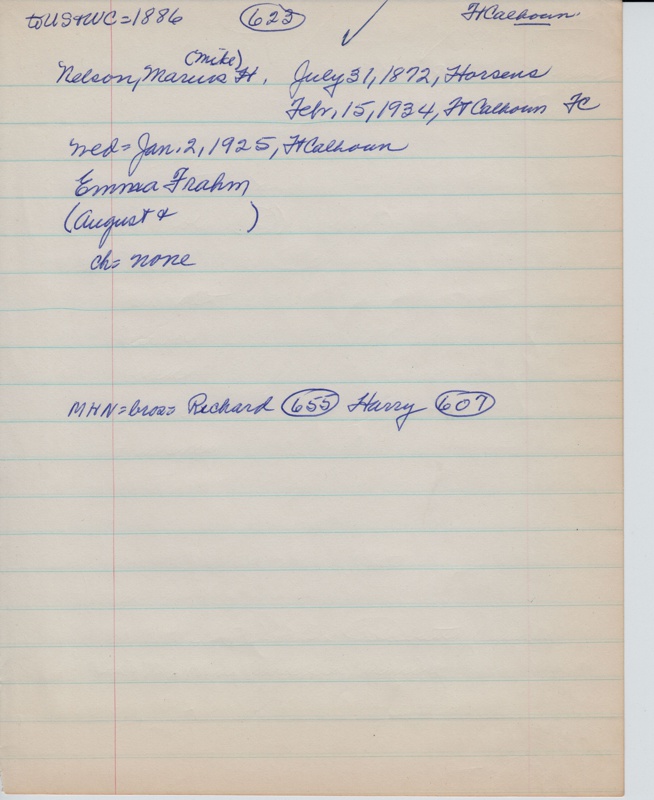 to US + WC = 1886 623 ✓ Ft Calhoun
(Mike)
Nelson, Marius H. July 31, 1872, Horsens
Febr, 15, 1934, Ft Calhoun FC
wed = Jan. 2, 1925, Ft Calhoun
Emma Frahm
(August + )
ch = none
MHN = bros = Richard 655 Harry 607